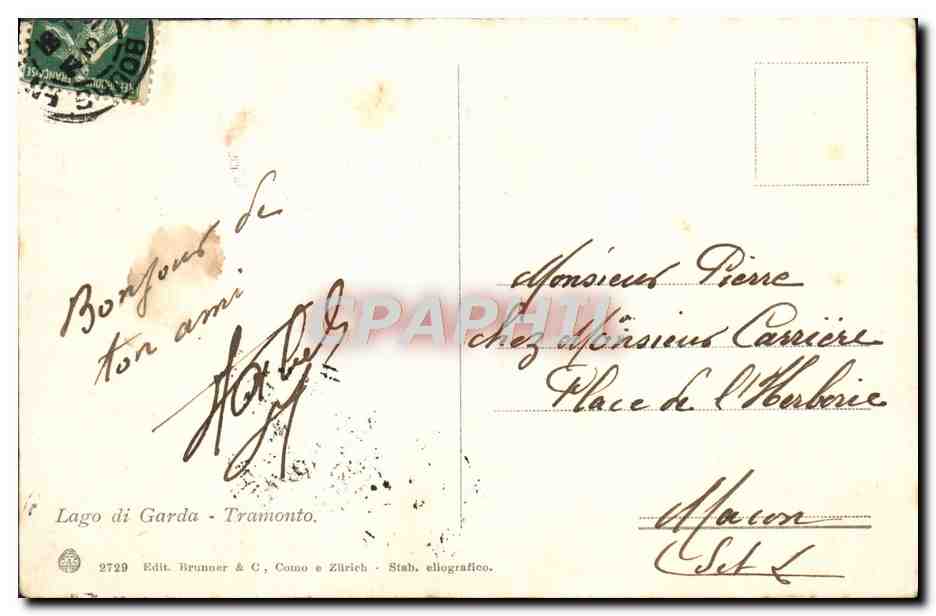 BOURG
Bonjour de
ton ami
Monsieur Pierre
chez Monsieur Carrière
Place de l'Herberie
Macon
S et L
CPAPHIL
Lago di Garda - Tramonto.
2729 Edit. Brunner & C, Como e Zürich - Stab. eliografico.